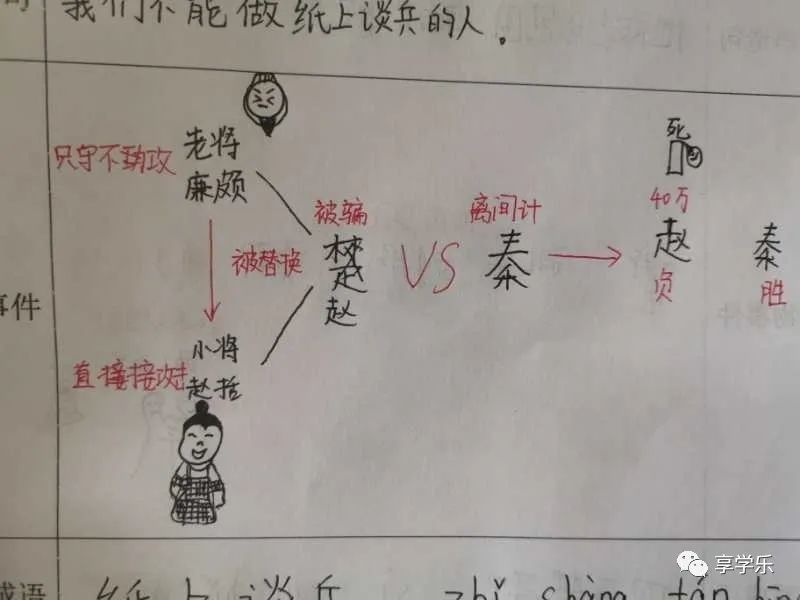 我们不能做纸上谈兵的人。
只守不攻
老将
廉颇
被替换
直接攻打
小将
赵括
被骗
赵
VS
离间计
秦
死
40万
赵
负
秦
胜
事件
成语
纸上谈兵 zhǐ shàng tán bīng
享学乐